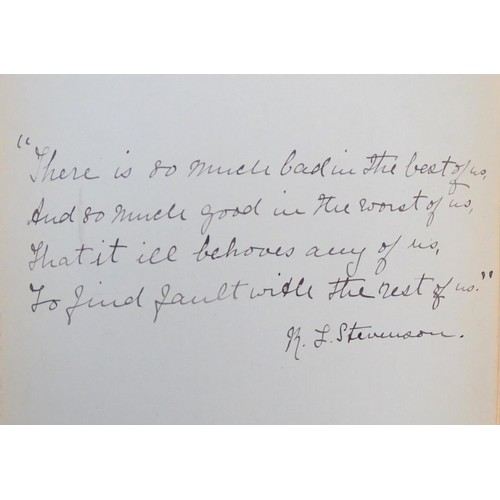 "There is so much bad in the best of us,
And so much good in the worst of us,
That it ill behoves any of us,
To find fault with the rest of us."
R. L. Stevenson.